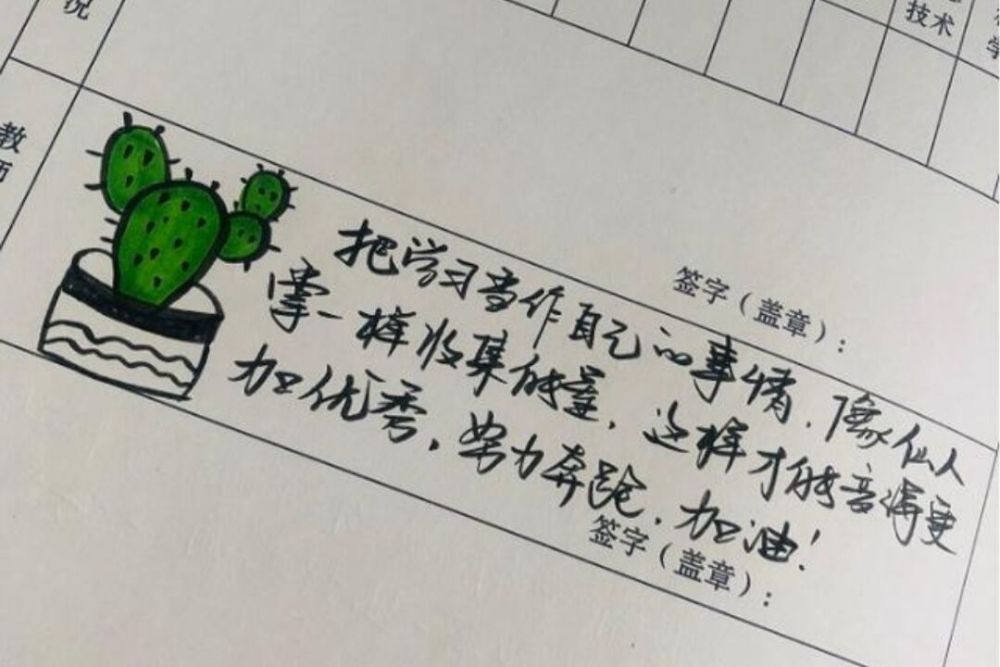 况
技术
学
教
历
签字（盖章）：
把学习当作自己的事情，像仙人
掌一样收集能量，这样才能变得更
加优秀，努力奔跑，加油！
签字（盖章）：